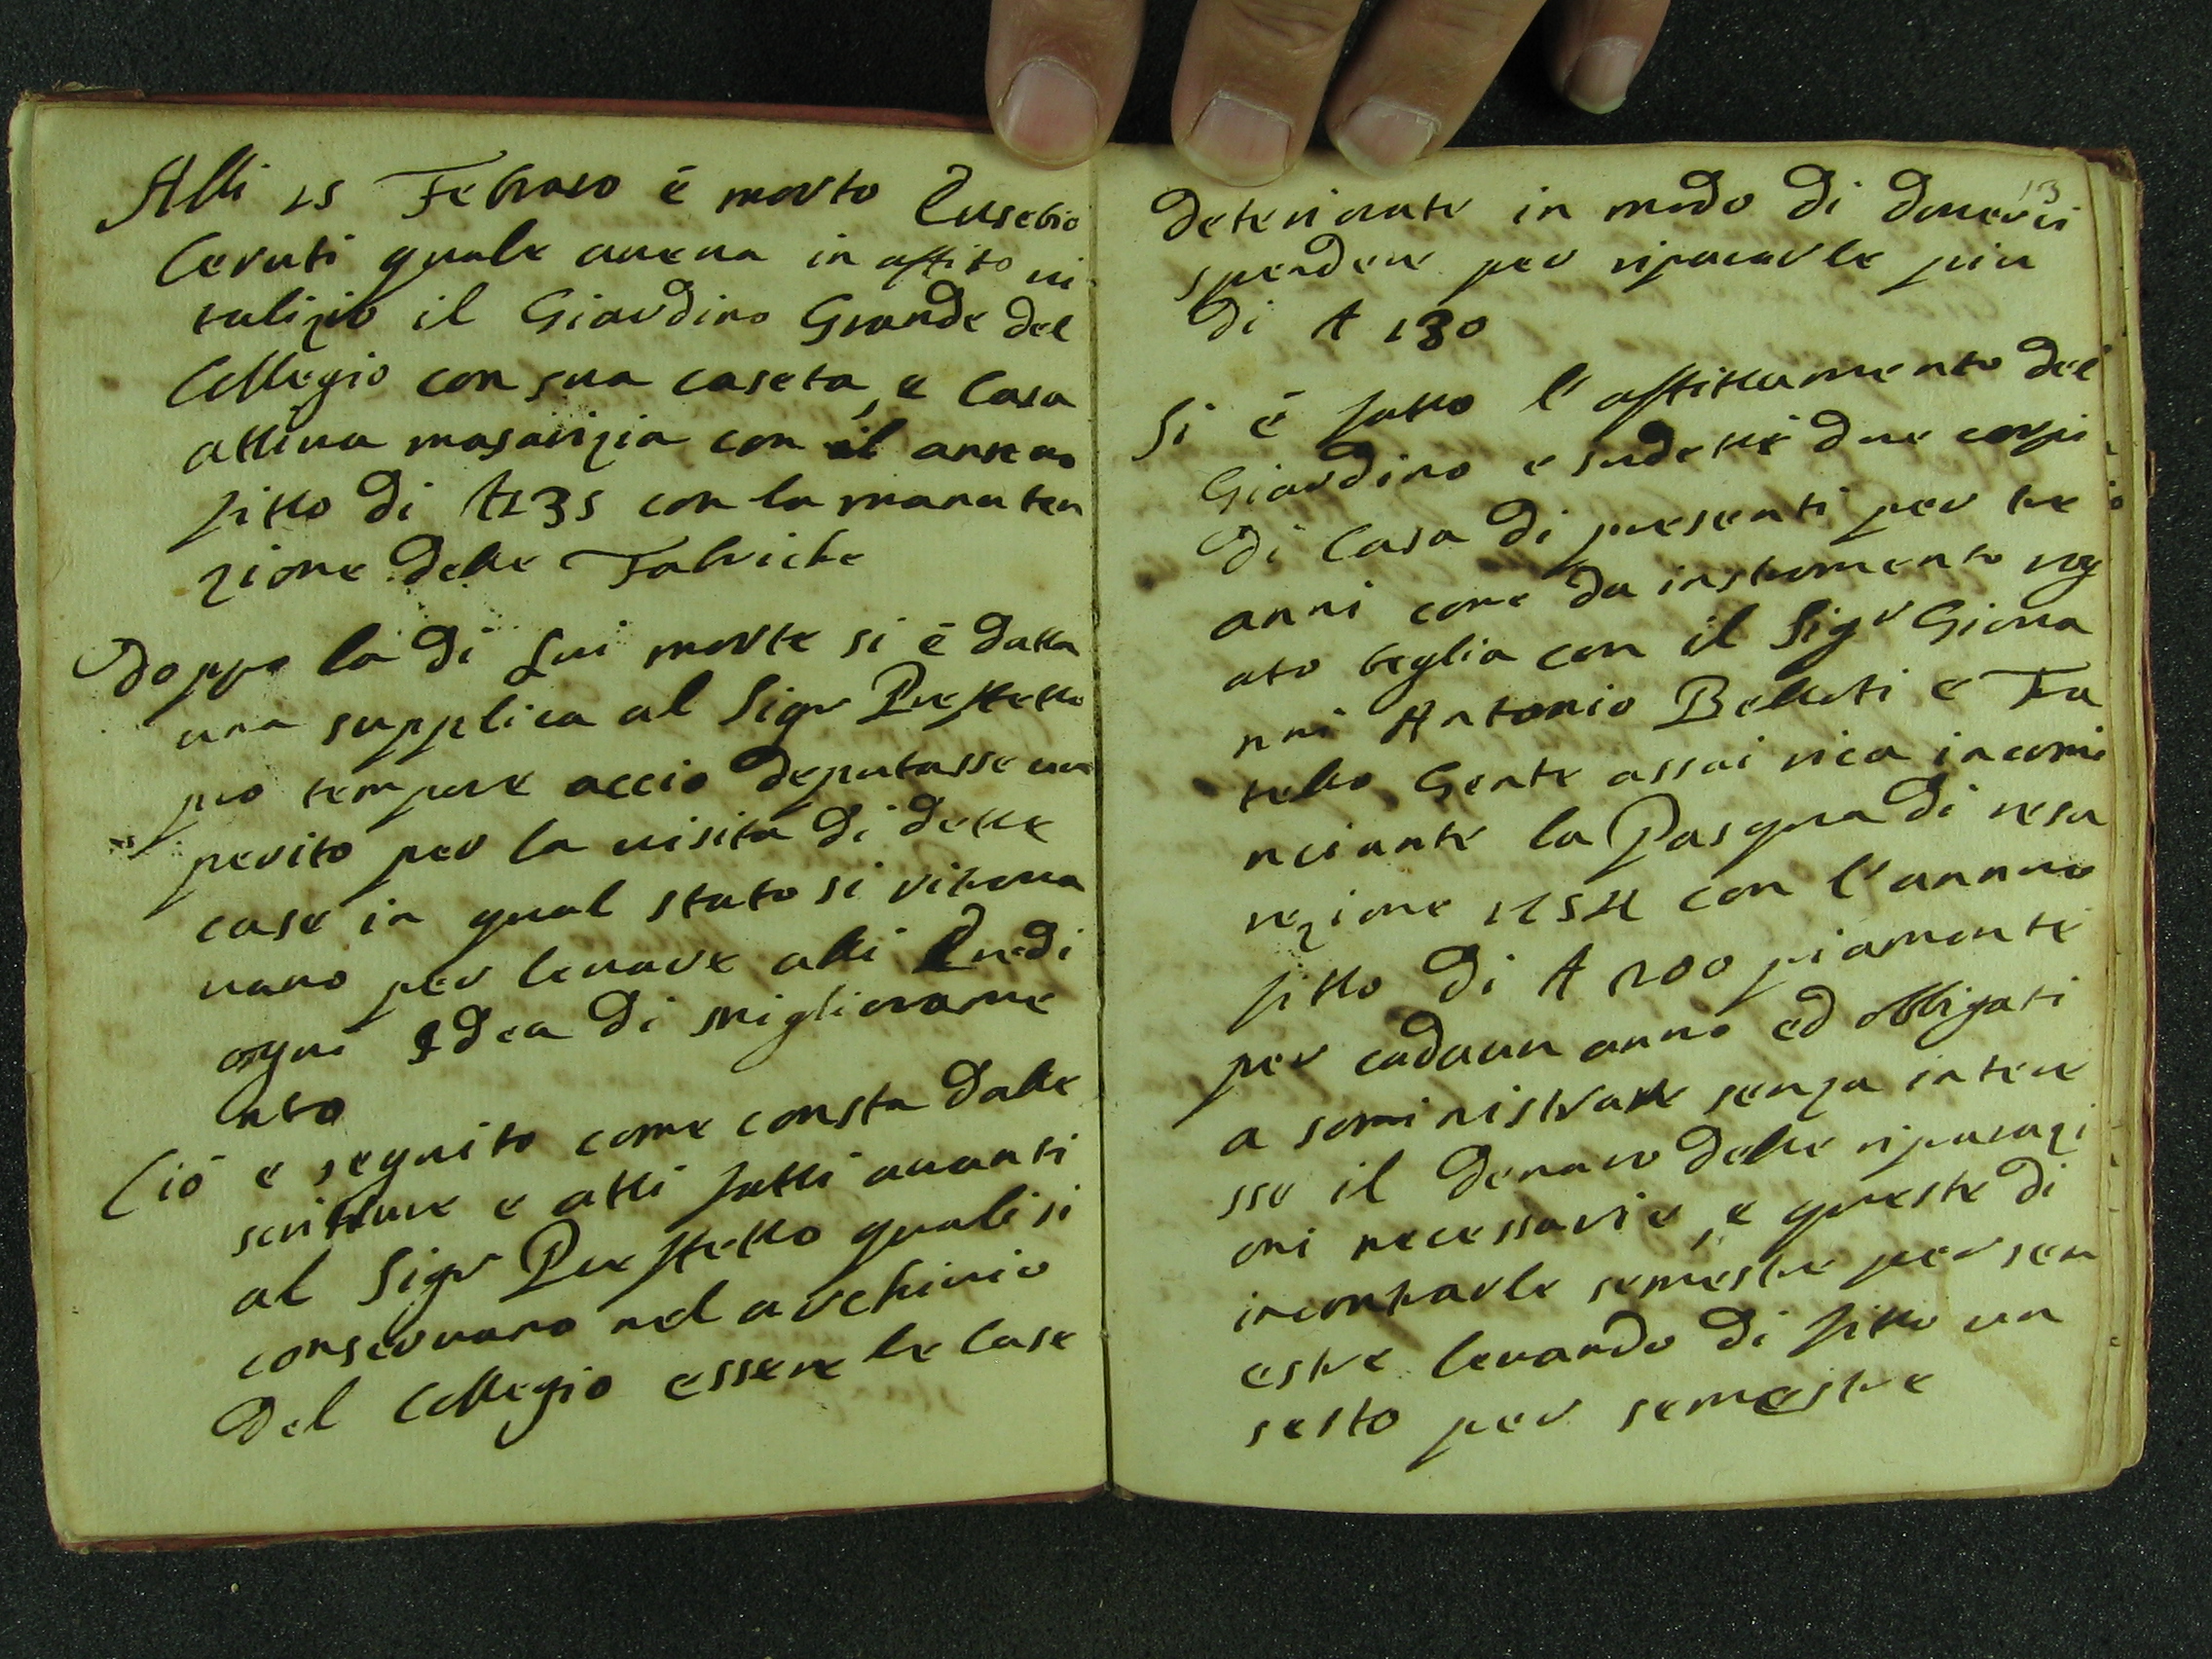 Alli 15 Febraro é morto Eusebio
Ceruti quale aueua in affito ui-
talizio il Giardino Grande del
Collegio con sua caseta, e Casa
attiua masarizia con il annuo
fitto di £ 135 con la manuten
zione delle Fabriche
Doppo la di Lui morte si é datta
una supplica al Sigr Prefetto
pro tempore accio deputasse un
perito per la uisita di dette
case in qual stato si ritroua
uano per leuare alli Eredi
ogni Idea di miglioramme
nto
Ció e seguito come consta dalle
scritture e atti fatti auanti
al Sigr Prefetto quali si
conseruano nel archiuio
del Collegio essere le Case
13
deteriorate in modo di douerci
spendere per ripararle piu
di £ 130
Si é fatto l'affittamento del
Giardino e sudetti due corpi
di Casa di presenti per tre
anni come da instromento rog
ato beglia con il Sigr Gioua
nni Antonio Belloti e Fra
tello Gente assai rica incomi
nciante la Pasqua di resu
rezione 1754 con l'annuo
fitto di £ 200 piamonte
per cadaun anno ed obbligati
a soministrare senza intere
sse il denaro delle riparazi
oni necessarie, e queste di
incontrarle semestre per sem
estre leuando di fitto un
sesto per semestre